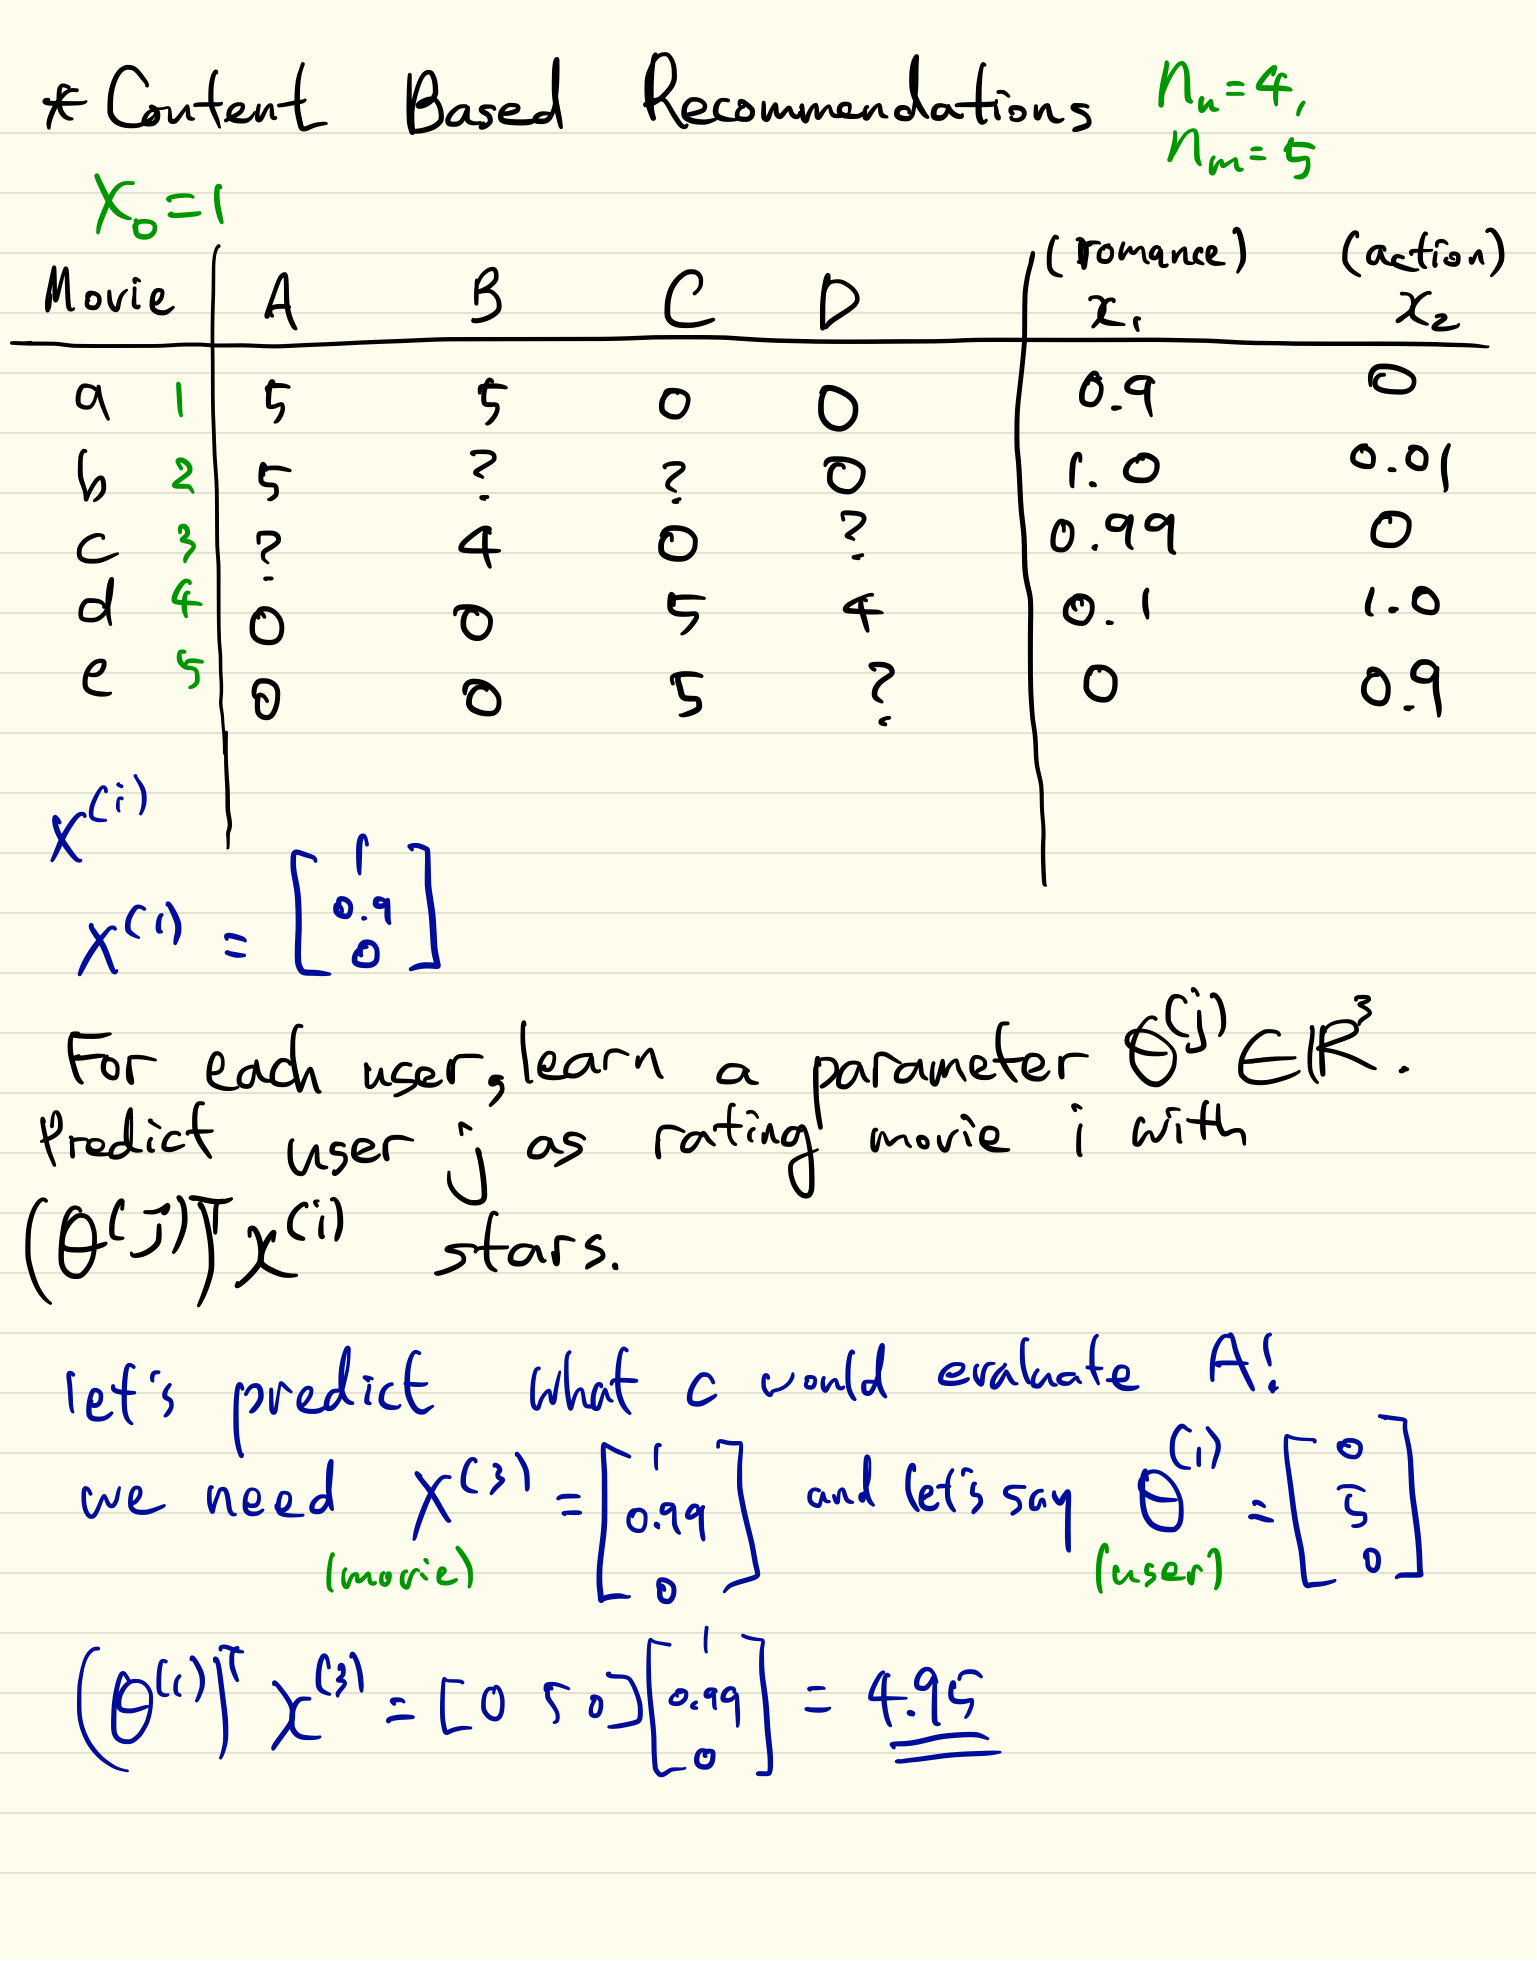 * Content Based Recommendations n_u = 4,
n_m = 5
X_0 = 1
(romance) (action)
Movie A B C D x_1 x_2
a 1 5 5 0 0 0.9 0
b 2 5 ? ? 0 1.0 0.01
c 3 ? 4 0 ? 0.99 0
d 4 0 0 5 4 0.1 1.0
e 5 0 0 5 ? 0 0.9
X^(i)
X^(1) = [1 0.9 0]
For each user, learn a parameter θ^(j) ∈ ℝ^3.
Predict user j as rating movie i with
(θ^(j))^T x^(i) stars.
let's predict what c would evaluate A!
we need X^(3) = [1 0.99 0] and let's say θ^(1) = [0 5 0]
(movie) (user)
(θ^(1))^T x^(3) = [0 5 0] [1 0.99 0] = 4.95